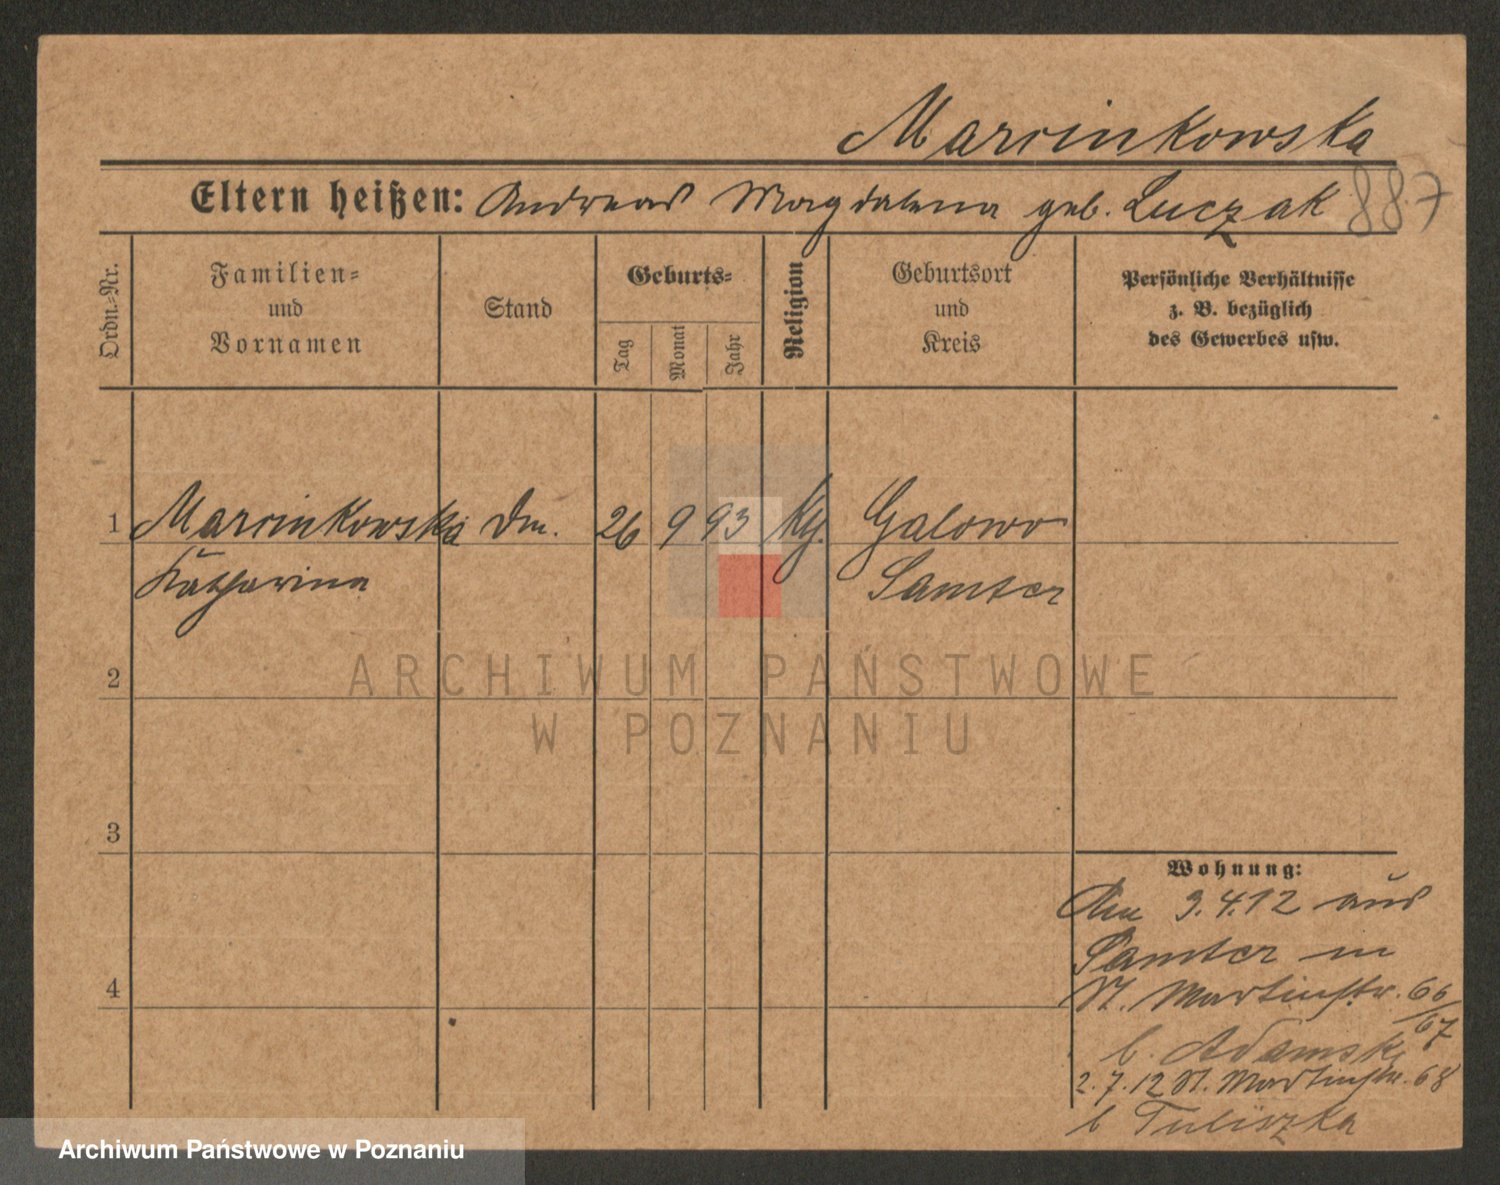 Marcinkowska
Eltern heißen: Andreas Magdalena geb. Luczak 887
Ordn.-Nr.
Familien-
und
Vornamen
Stand
Geburts-
Tag
Monat
Jahr
Religion
Geburtsort
und
Kreis
Persönliche Verhältnisse
z. B. bezüglich
des Gewerbes usw.
1 Marcinkowska Dm. 26 9 93 Kg. Galowo
Katharina Samter
ARCHIWUM PAŃSTWOWE
2
W POZNANIU
3
Wohnung:
3.4.12 aus
Samter in
4
St. Martinstr. 66/67
b. Adamski
2.7.12 St. Martinstr. 68
b Tuliszka
Archiwum Państwowe w Poznaniu